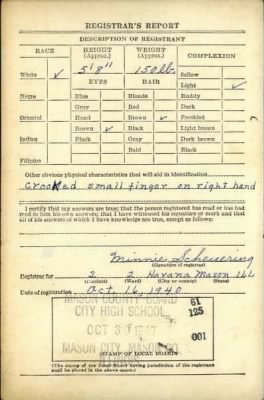 REGISTRAR'S REPORT
DESCRIPTION OF REGISTRANT
RACE HEIGHT (Approx.) WEIGHT (Approx.) COMPLEXION
White ✓ 5'8" 150 lb. Sallow
EYES HAIR Light ✓
Negro Blue Blonde Ruddy
Gray Red Dark
Oriental Hazel Brown ✓ Freckled
Brown ✓ Black Light brown
Indian Black Gray Dark brown
Bald Black
Filipino
Other obvious physical characteristics that will aid in identification
Crooked small finger on right hand
I certify that my answers are true; that the person registered has read or has had
read to him his own answers; that I have witnessed his signature or mark and that
all of his answers of which I have knowledge are true, except as follows:
Minnie Scheuering
(Signature of registrar)
Registrar for 2 2 Havana Mason Ill
(Precinct) (Ward) (City or county) (State)
Date of registration Oct. 16, 1940
MASON COUNTY BOARD 61
CITY HIGH SCHOOL 125
OCT 1940 001
MASON CITY, MASON CO
ILLINOIS
STAMP OF LOCAL BOARD
(The stamp of the Local Board having jurisdiction of the registrant
shall be placed in the above space)